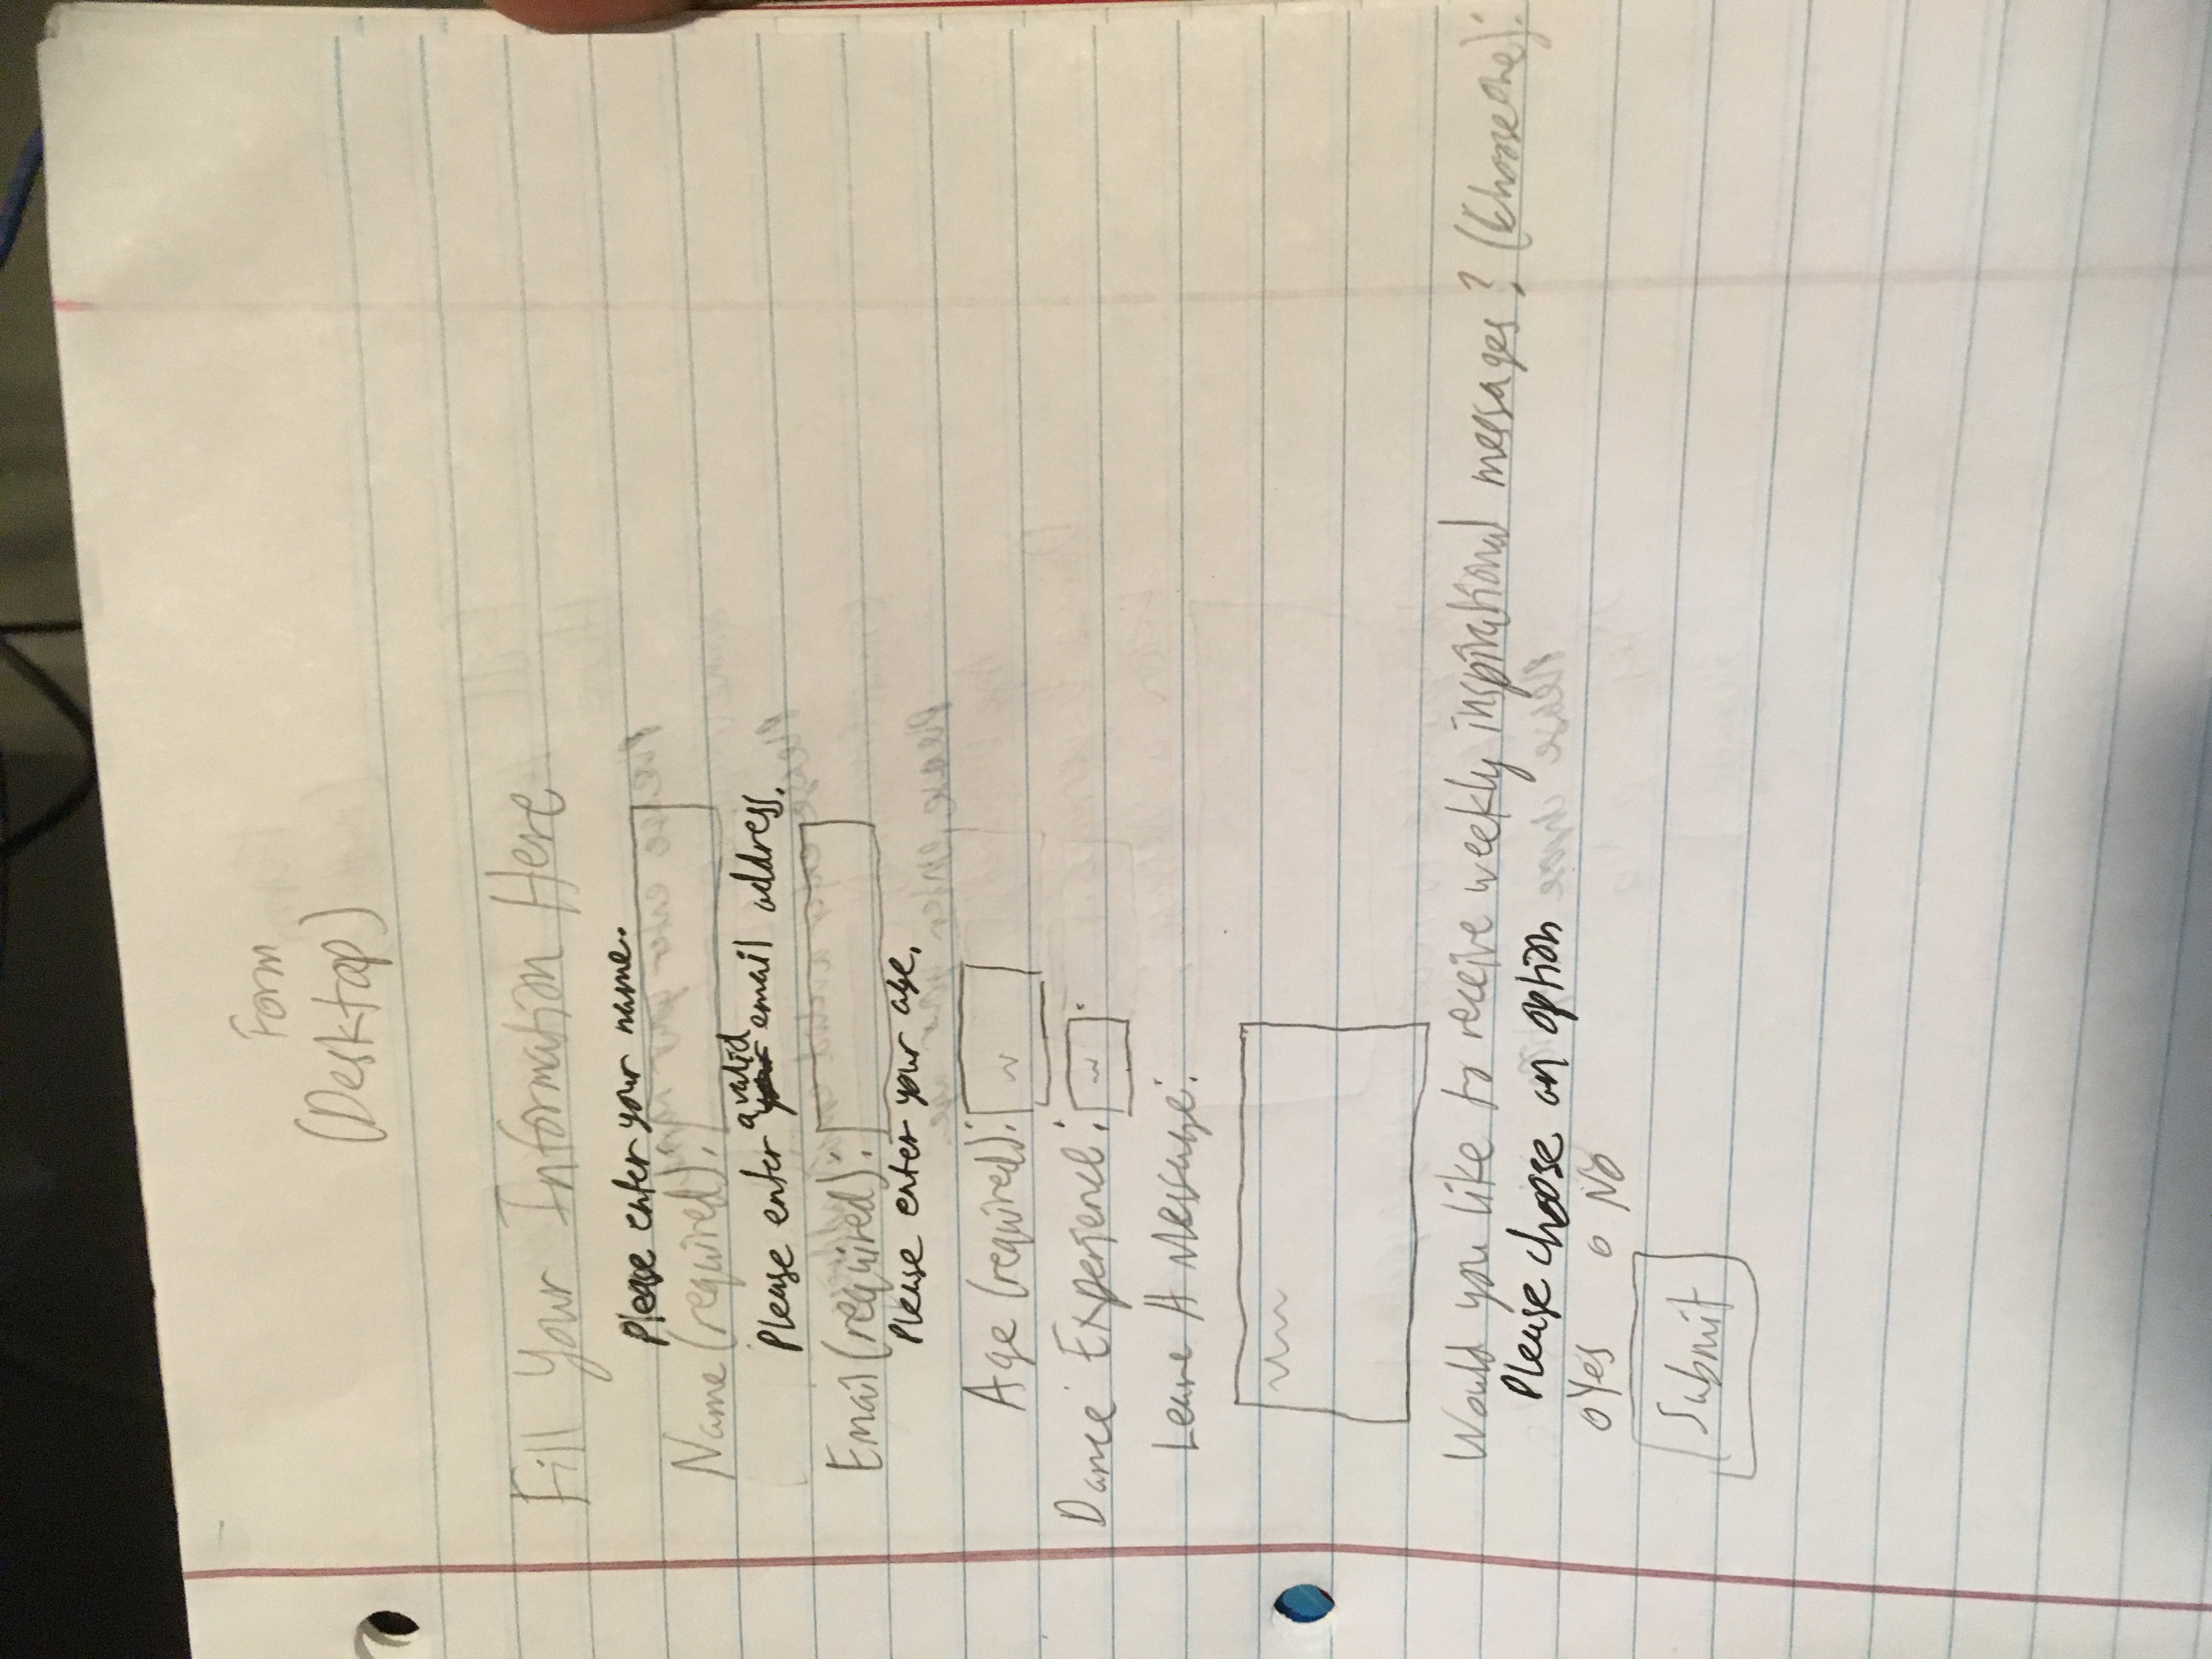 Form
(Desktop)
Fill Your Information Here
Please enter your name.
Name (required):
a valid
Please enter your email address.
Email (required):
Please enter your age.
Age (required):
Dance Experience:
Leave A Message:
Would you like to receive weekly inspirational messages? (Choose one):
Please choose an option
Yes No
Submit